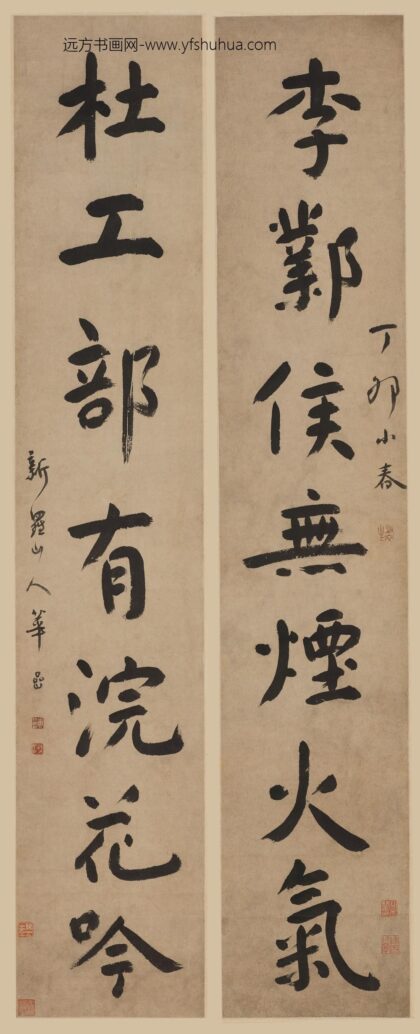 远方书画网-www.yfshuhua.com
李鄴侯無煙火氣
丁卯小春
杜工部有浣花吟
新羅山人華嵒